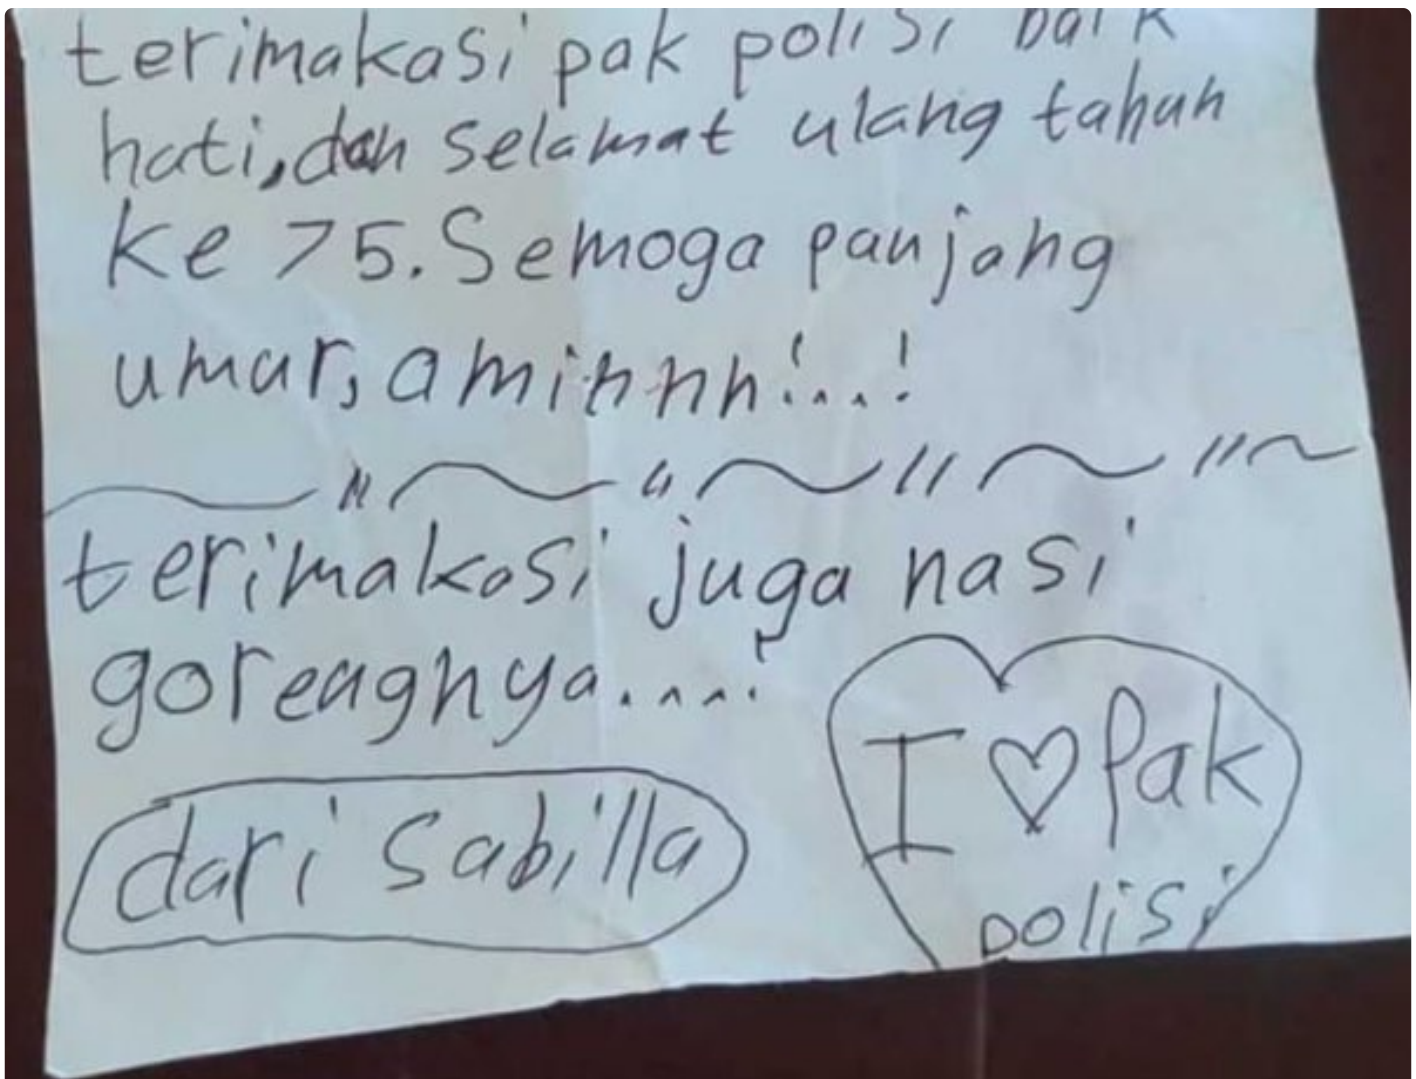 terimakasi pak polisi baik
hati, dan selamat ulang tahun
ke 75. Semoga panjang
umur, aminnnn!...!
terimakasi juga nasi
goreagnya....!
dari Sabilla
I ♡ Pak
polisi